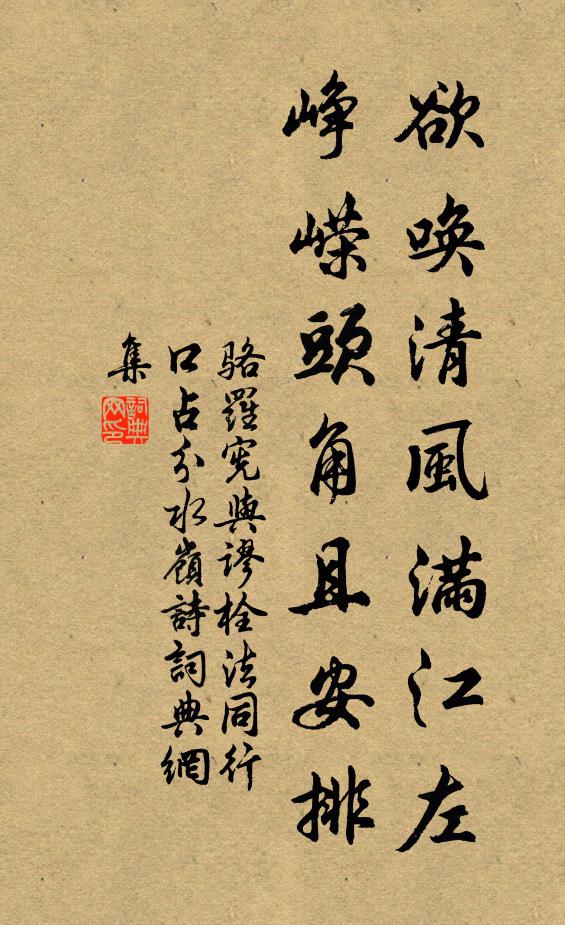 欲唤清風滿江左
峥嶸頭角且安排
駱羅憲與謬栓法同行
口占分水嶺詩詞典網
集
詞典
网印